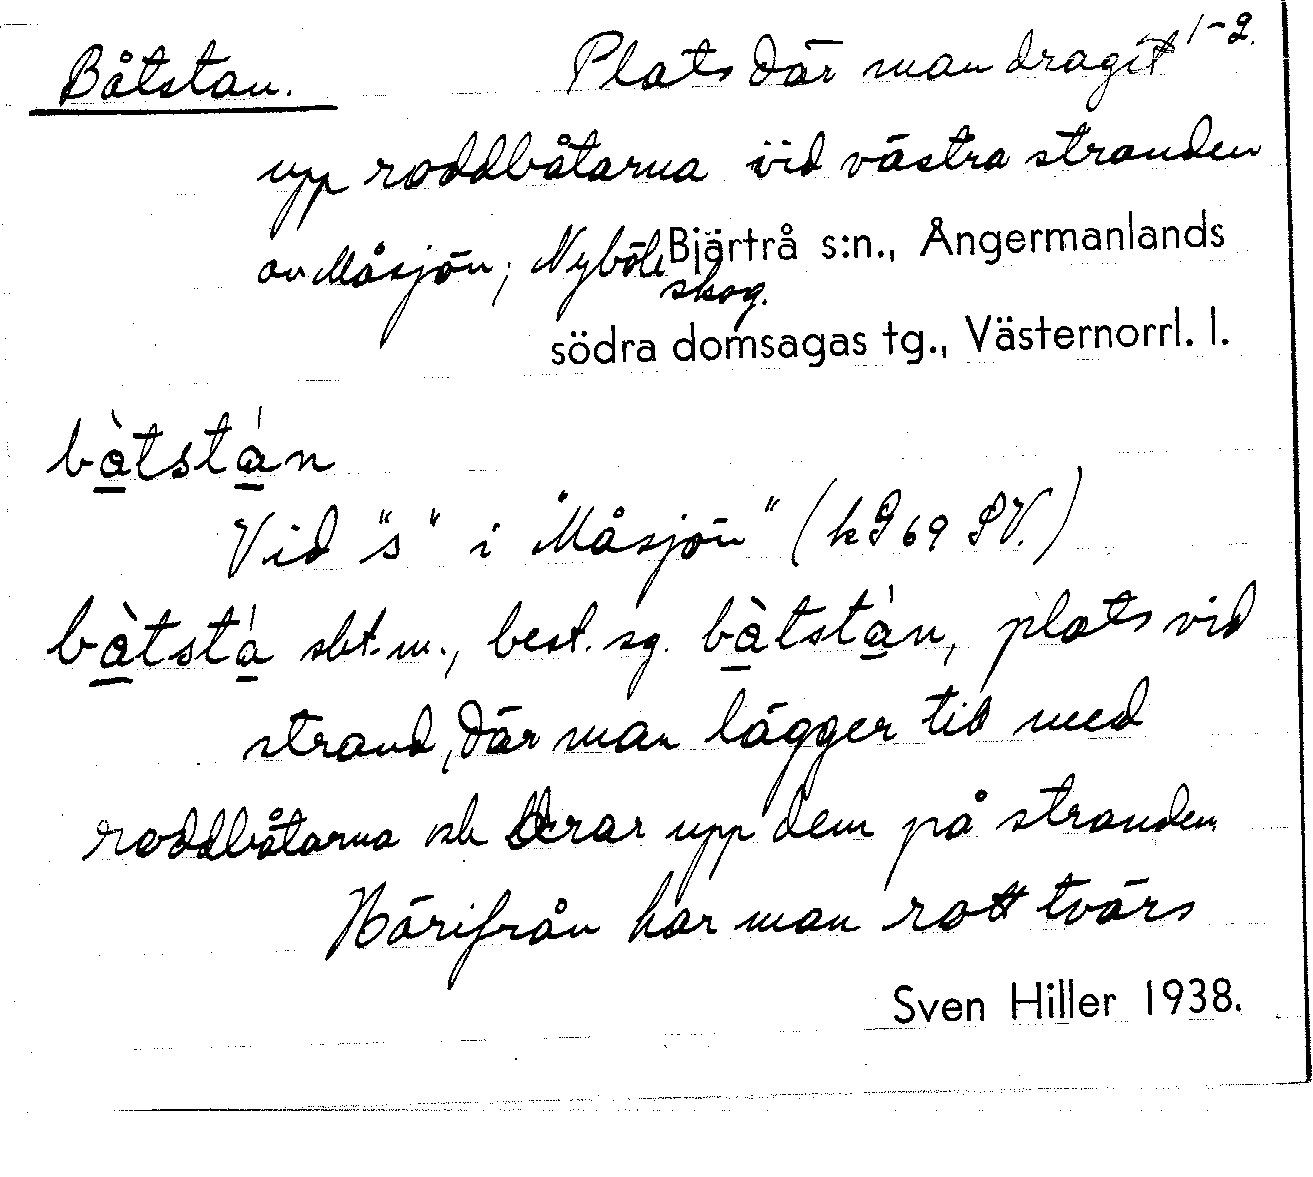 Båtstan. Plats där man dragit 1-2.
upp roddbåtarna vid västra stranden
av Måsjön; Nyböle Bjärtrå s:n., Ångermanlands
skog.
södra domsagas tg., Västernorrl. l.
bàtstán
Vid "s" i "Måsjön" (k G 69 SV.)
bàtstá sbt. m., best. sg. bàtstán, plats vid
strand, där man lägger till med
roddbåtarna och drar upp dem på stranden
Härifrån har man rott tvärs
Sven Hiller 1938.